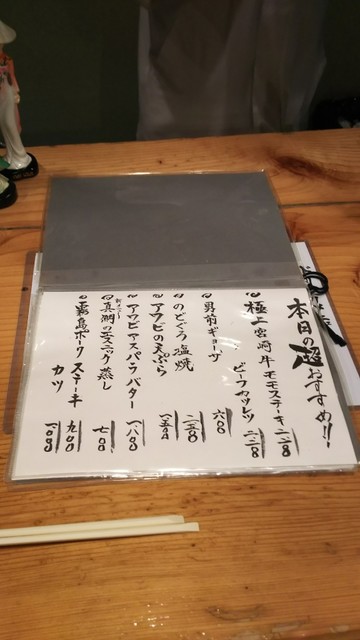 本日の超おすすめ!!
極上宮崎牛モモステーキ 二二〇〇
ビーフカツレツ 二二〇〇
男前ギョーザ 六〇〇
のどぐろ塩焼
アワビの天ぷら 一五〇〇
アワビアスパラバター 一八〇〇
真鯛のエスニック蒸し 七〇〇
霧島ポークステーキ 九〇〇
カツ